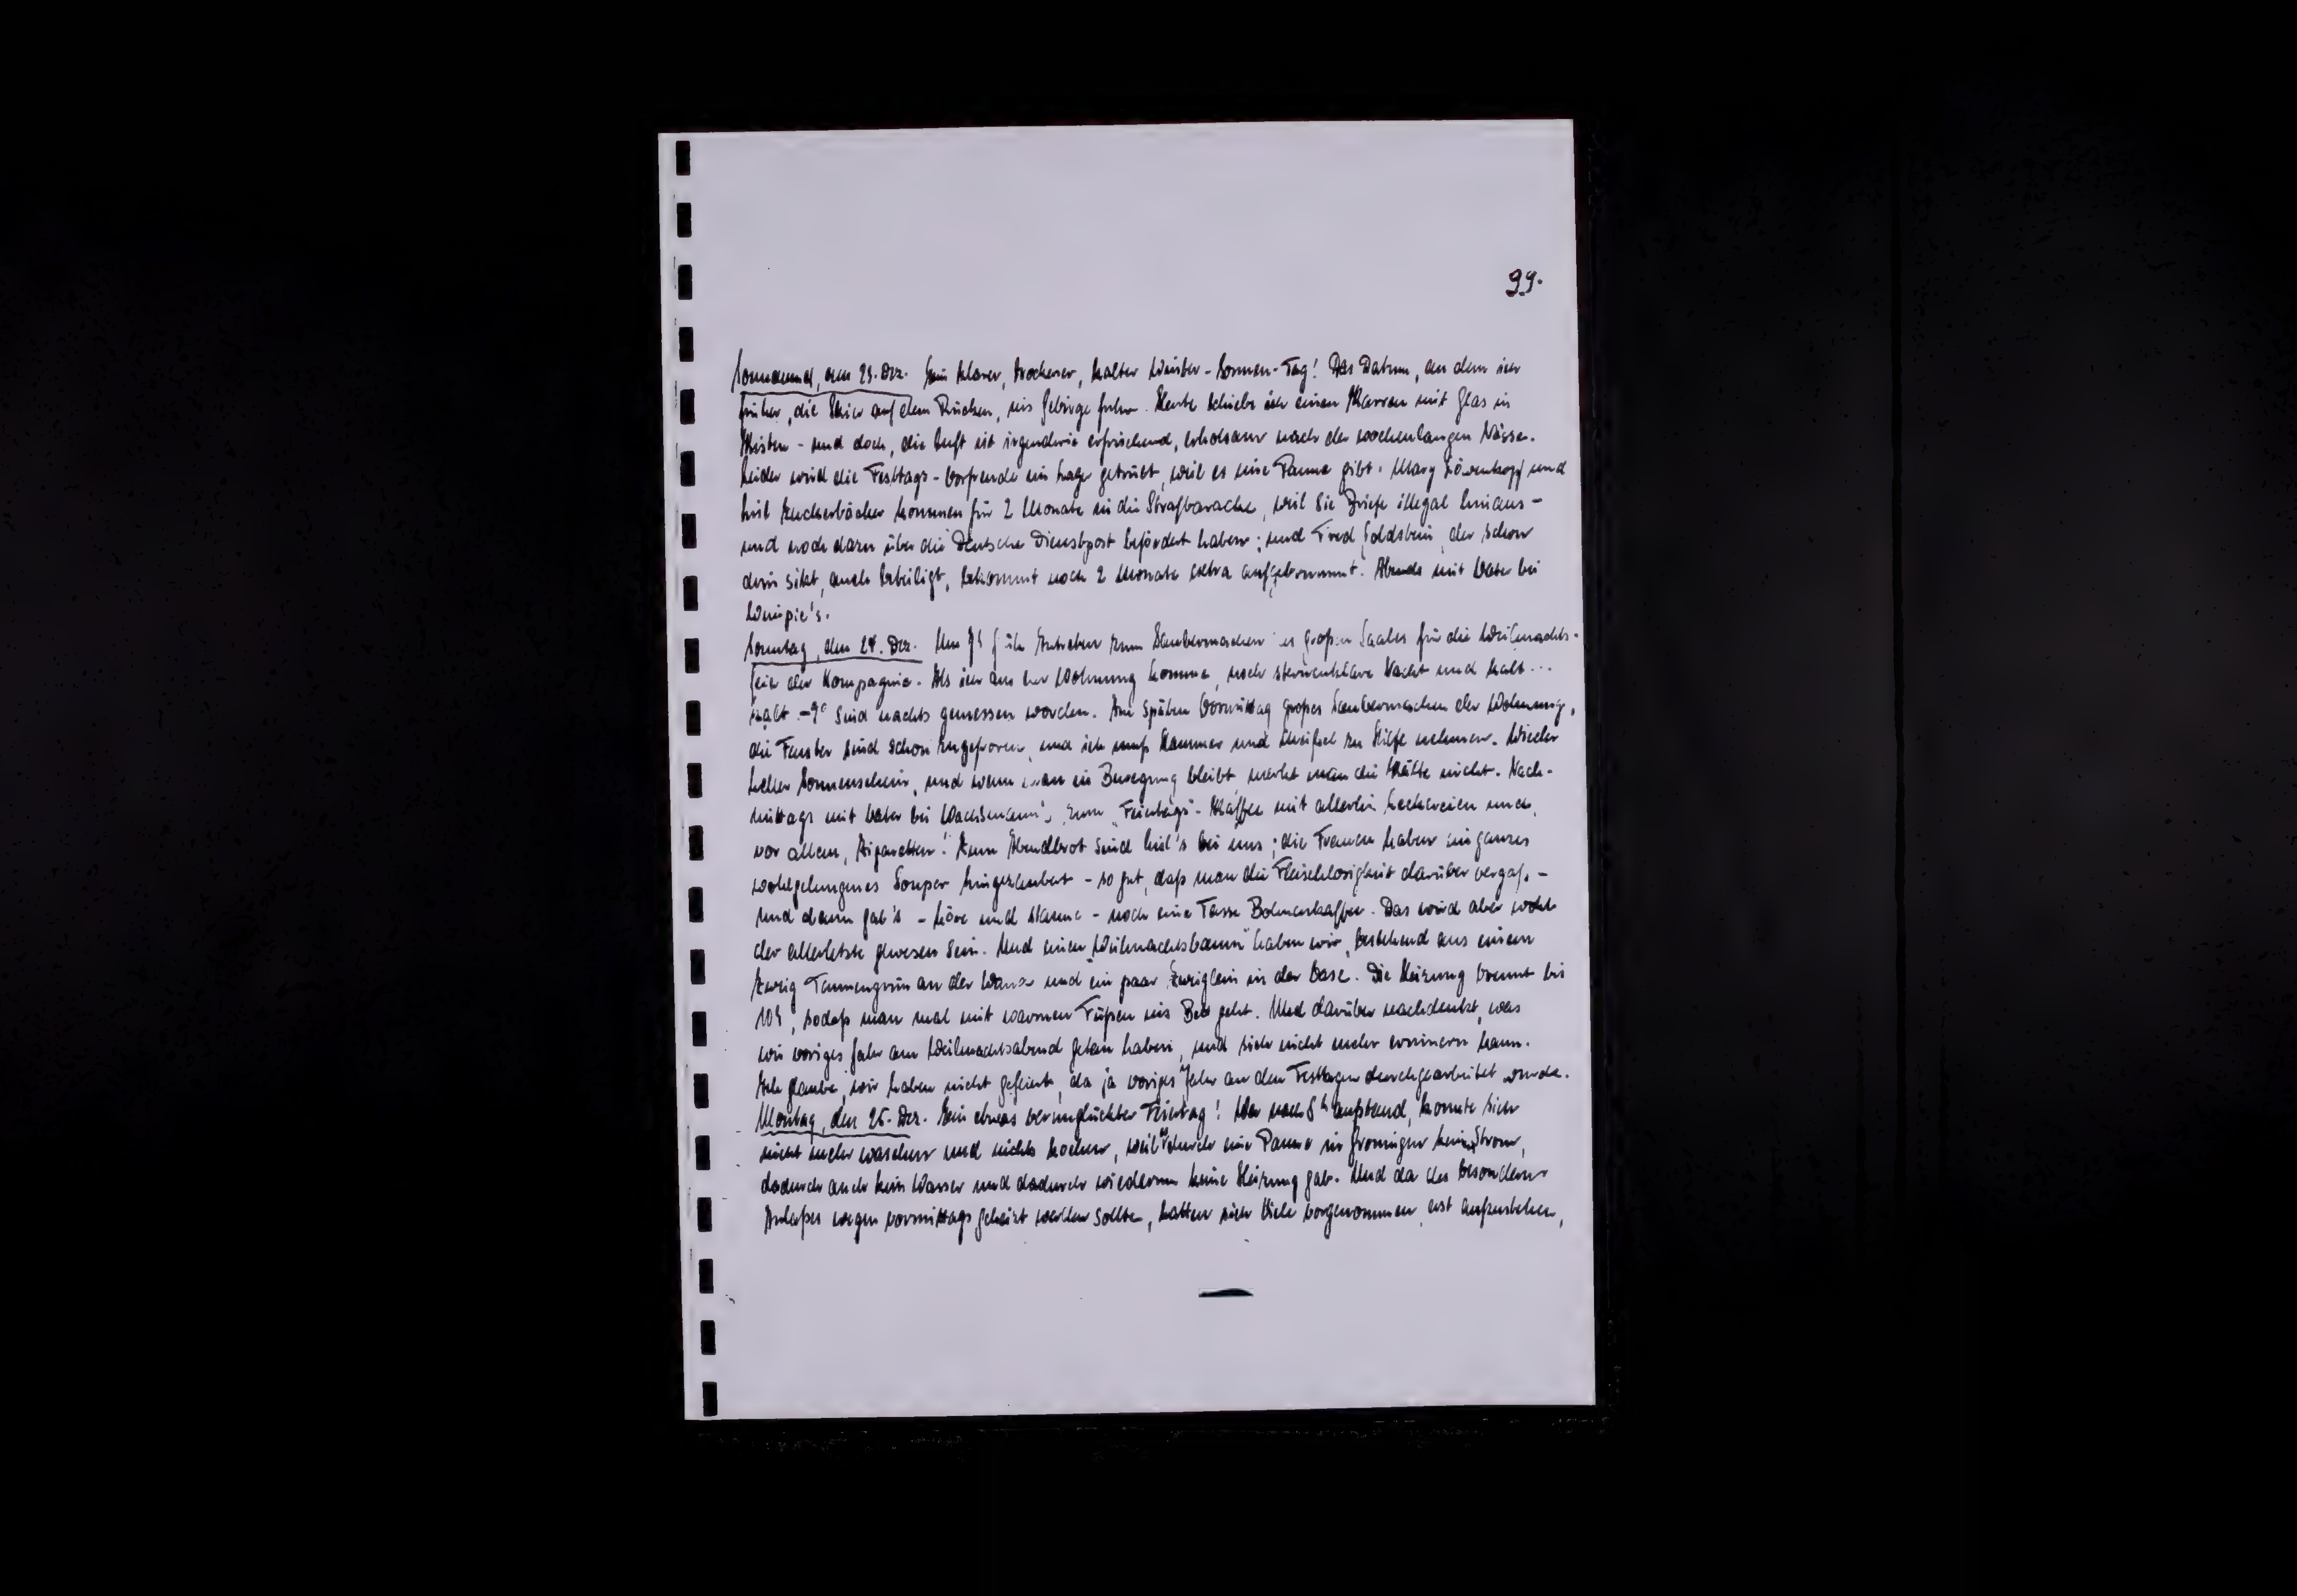 99.
Sonnabend, den 23. Dez. Ein klarer, trockener, kalter Winter-Sonnen-Tag! Das Datum, an dem ich
früher, die Skier auf dem Rücken, ins Gebirge fuhr. Heute schiebe ich einen Karren mit Glas in
Kisten - und doch, die Luft ist irgendwie erfrischend, erholsam nach der wochenlangen Nässe.
Leider wird die Festtags-Vorfreude im Lager getrübt, weil es eine Panne gibt. Mary Löwenkopf und
Zuckerbäcker kommen für 2 Monate in die Strafbaracke, weil sie Briefe illegal hinaus-
und noch dazu über die Deutsche Dienstpost befördert haben; und Fred Goldstein, der schon
drin sitzt, auch beteiligt, bekommt noch 2 Monate extra aufgebrummt. Abends mit Vater bei
Wempie's.
Sonntag, den 24. Dez. Um Antreten zum Saubermachen des großen Saales für die Weihnachts-
feier der Kompagnie. Als ich aus der Wohnung komme, noch sternenklare Nacht und kalt...
kalt -9° sind nachts gemessen worden. Am späten Vormittag großes Saubermachen der Wohnung,
die Fenster sind schon zugefroren, und ich muß Hammer und Meißel zu Hilfe nehmen. Wieder
heller Sonnenschein, und wenn man in Bewegung bleibt, merkt man die Kälte nicht. Nach-
mittags mit Vater bei Wachsmann's zum "Feiertags"-Kaffee mit allerlei Leckereien und,
vor allem, Zigaretten! Zum Abendbrot sind bei uns; die Frauen haben ein ganzes
wohlgelungenes Souper hingezaubert - so gut, daß man die Fleischlosigkeit darüber vergaß. -
Und dann gab's - höre und staune - noch eine Tasse Bohnenkaffee. Das wird aber wohl
der allerletzte gewesen sein. Und einen "Weihnachtsbaum" haben wir, bestehend aus einem
Zweig Tannengrün an der Wand und ein paar Zweiglein in der Vase. Die Heizung brennt bis
10h, sodaß man mal mit warmen Füßen ins Bett geht. Und darüber nachdenkt, was
wir voriges Jahr am Weihnachtsabend getan haben, und sich nicht mehr erinnern kann.
Ich glaube, wir haben nicht gefeiert, da ja voriges Jahr an den Festtagen durchgearbeitet wurde.
Montag, den 25. Dez. Ein etwas verunglückter Feiertag! Wer nach 8h aufstand, konnte sich
nicht mehr waschen und nichts kochen, weil es durch eine Panne in Groningen keinen Strom,
dadurch auch kein Wasser und dadurch wiederum keine Heizung gab. Und da des besonderen
Anlaßes wegen vormittags geheizt werden sollte, hatten sich Viele vorgenommen, erst aufzustehen,